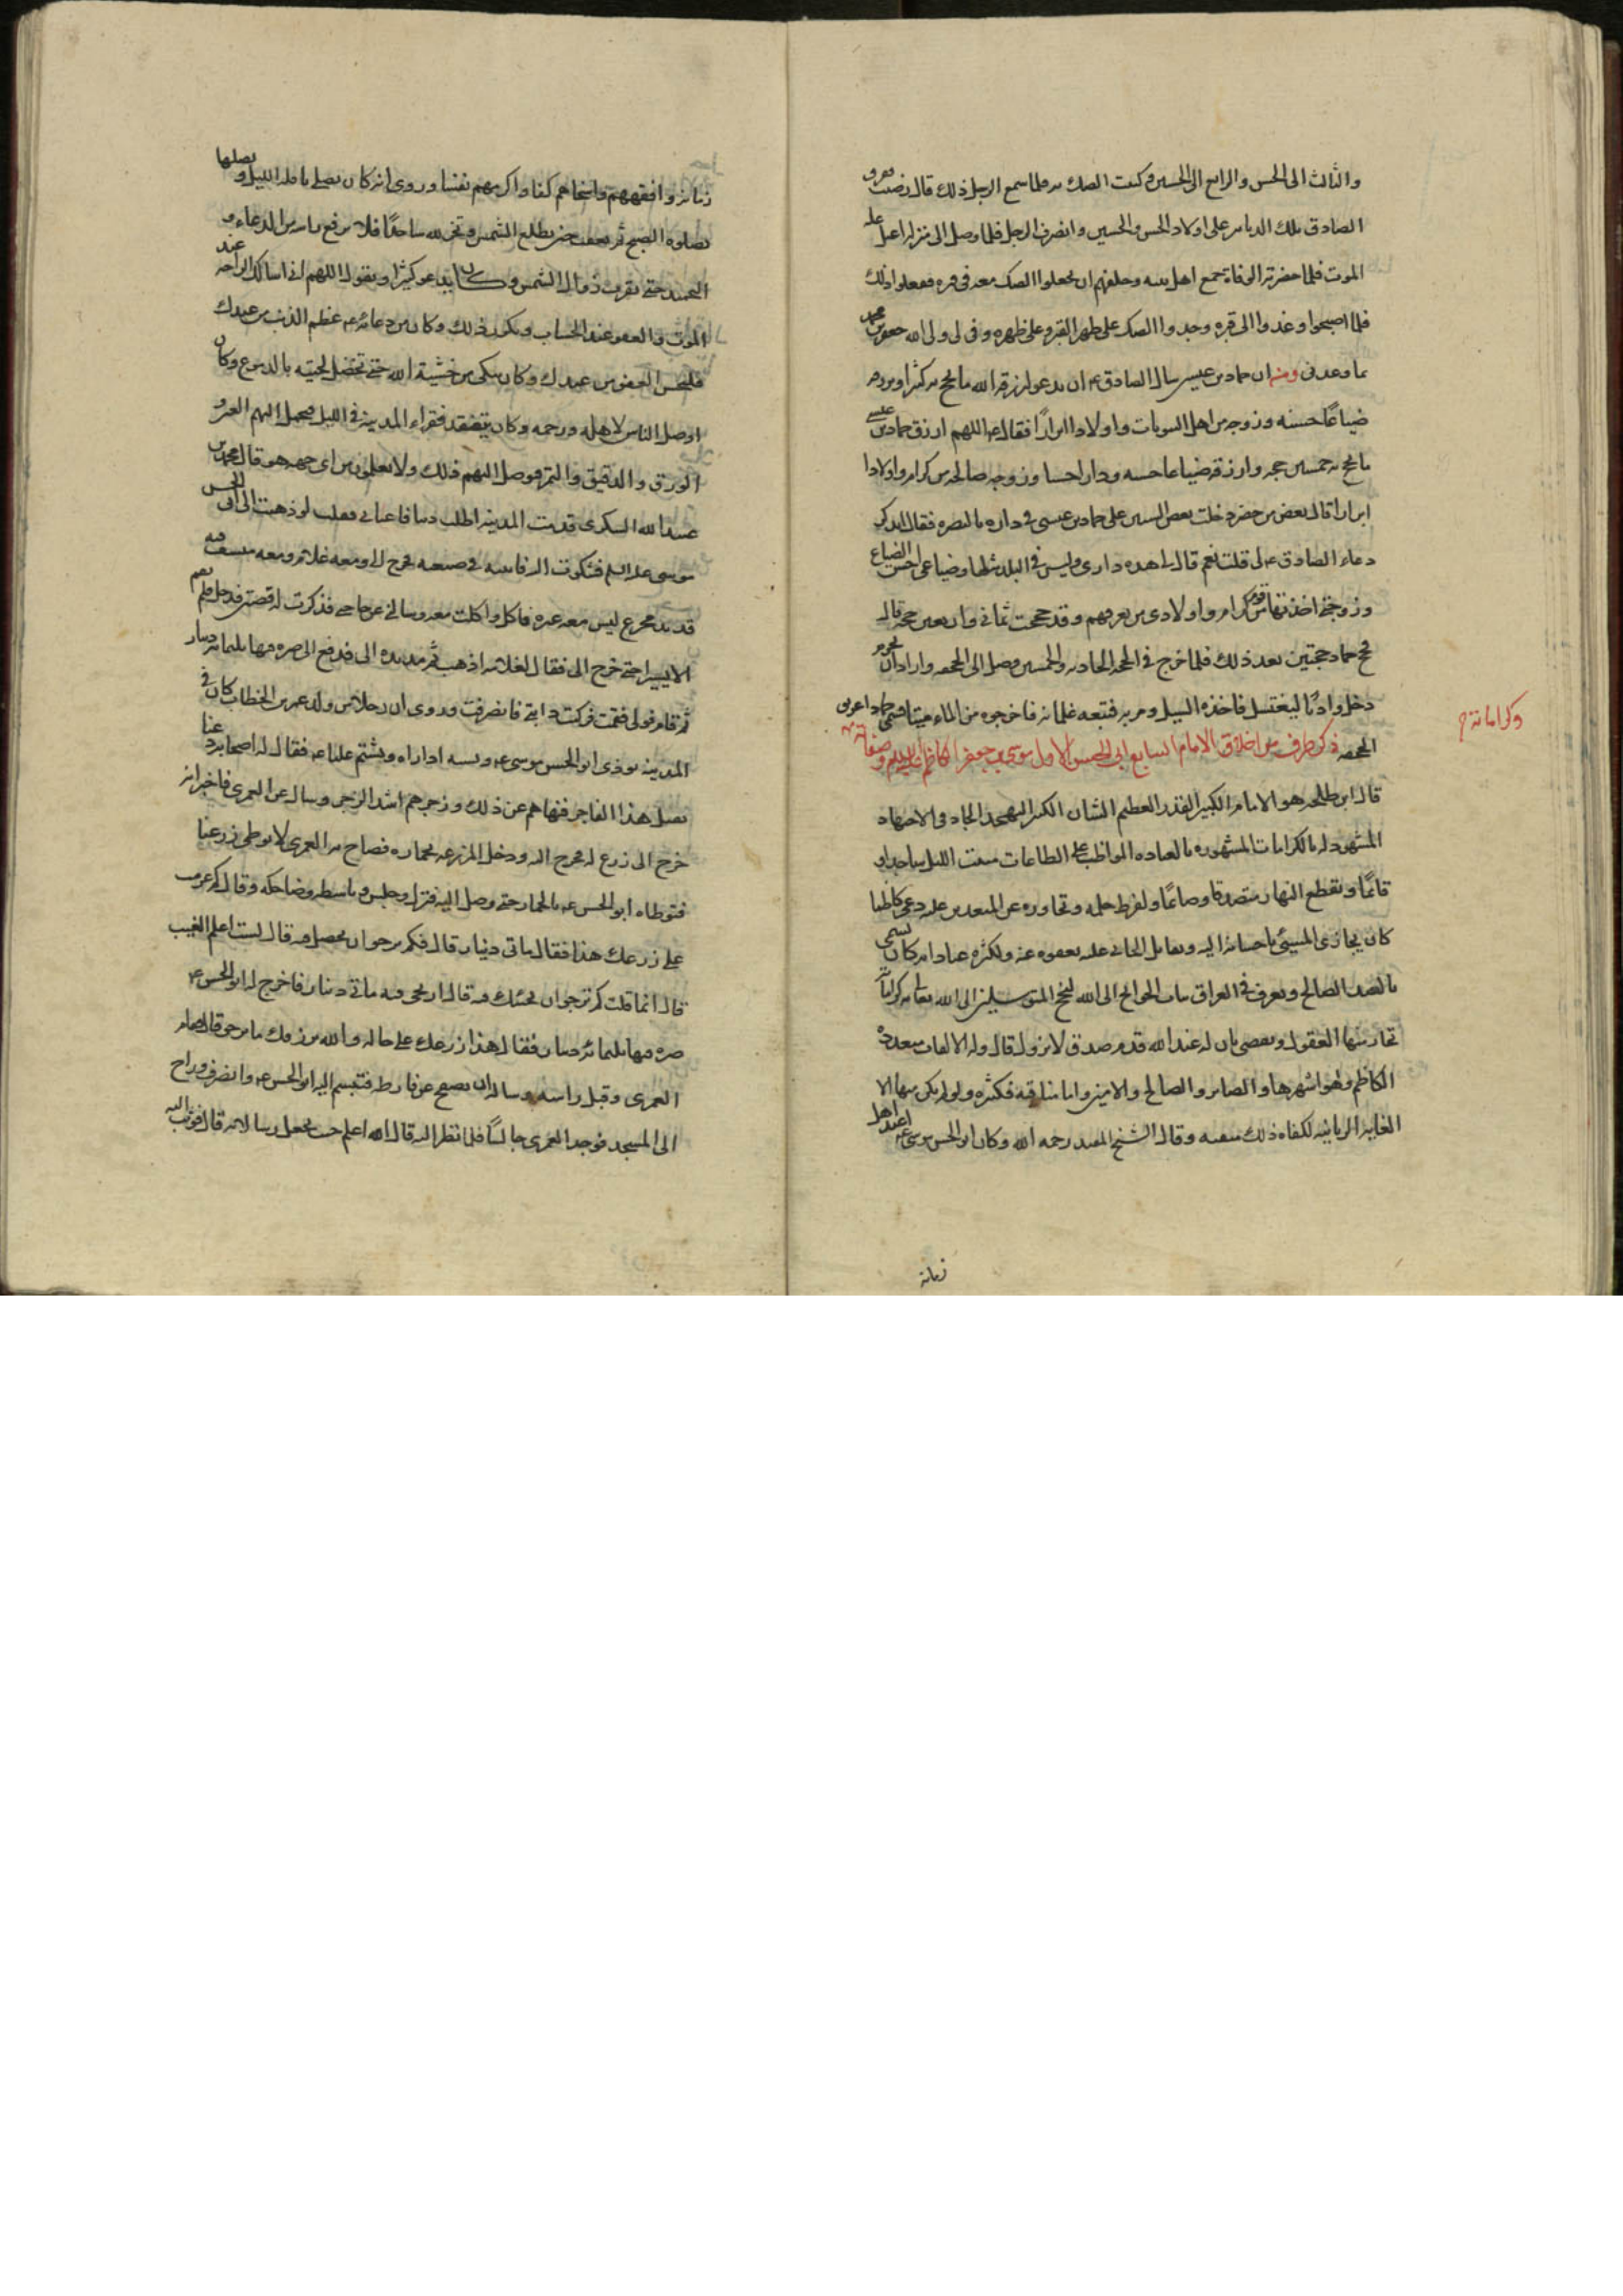 والثالث الى الحسن والرابع الى الحسين وكتبت الصك به فلما سمع الرجل ذلك قال رضيت ففرق
الصادق تلك الدنانير على اولاد الحسن والحسين وانصرف الرجل فلما وصل الى منزله اعتل علة
الموت فلما حضرته الوفاة جمع اهل بيته وحلفهم ان يجعلوا الصك معه في قبره ففعلوا ذلك
فلما اصبحوا وغدوا الى قبره وجدوا الصك على ظهر القبر وعلى ظهره وفى لى ولى الله جعفر بن محمد
بما وعدنى ومنه ان حماد بن عيسى سال الصادق ع ان يدعو له ليرزقه الله ما يحج به كثيرا ويرزقه
ضياعا حسنه وزوجه من اهل البيوتات واولادا ابرارا فقال ع اللهم ارزق حماد بن عيسى
ما يحج به خمسين حجه وارزقه ضياعا حسنه ودارا حسنا وزوجه صالحه من كرام واولادا
ابرارا قال بعض من حضر دخلت بعض السنين على حماد بن عيسى في داره بالبصره فقال اتذكر
دعاء الصادق ع لى قلت نعم قال هذه دارى وليس في البلد مثلها وضياعى احسن الضياع
وزوجتى اخذتها من قوم كرام واولادى من تعرفهم وقد حججت ثمانى واربعين حجه قال
فحج حماد حجتين بعد ذلك فلما خرج في الحجه الحاديه والخمسين وصل الى الجحفه واراد ان يحرم
دخل واديا ليغتسل فاخذه السيل ومر به فتبعه غلمانه فاخرجوه من الماء ميتا فسمى حماد غريق
الجحفه ذكر طرف من اخلاق الامام السابع ابى الحسن الاول موسى بن جعفر الكاظم عليه السلام وصفاته
وكراماته
قال ابن طلحه هو الامام الكبير القدر العظيم الشان الكثير التهجد الجاد في الاجتهاد
المشهود له بالكرامات المشهور بالعباده المواظب على الطاعات يبيت الليل ساجدا و
قائما ويقطع النهار متصدقا وصائما ولفرط حلمه وتجاوزه عن المعتدين عليه دعى كاظما
كان يجازى المسيئ باحسانه اليه ويقابل الجانى عليه بعفوه عنه ولكثره عباداته كان يسمى
بالعبد الصالح ويعرف في العراق بباب الحوائج الى الله لنجح المتوسلين الى الله تعالى به كراماته
تحار منها العقول وتقضى بان له عند الله قدم صدق لا يزول قال وله القاب متعدده
الكاظم وهو اشهرها والصابر والصالح والامين واما مناقبه فكثيره ولو لم يكن منها الا
العنايه الربانيه لكفاه ذلك منقبه وقال الشيخ المفيد رحمه الله وكان ابو الحسن موسى ع اعبد اهل
زمانه
زمانه وافقههم واسخاهم كفا واكرمهم نفسا وروى انه كان يصلى نافله الليل ويصلها
بصلوه الصبح ثم يعقب حتى تطلع الشمس ويخر لله ساجدا فلا يرفع راسه من الدعاء و
التحميد حتى يقرب زوال الشمس وكان يدعو كثيرا ويقول اللهم انى اسالك الراحه عند
الموت والعفو عند الحساب ويكرر ذلك وكان من دعائه ع عظم الذنب من عبدك
فليحسن العفو من عندك وكان يبكى من خشية الله حتى تخضل لحيته بالدموع وكان
اوصل الناس لاهله ورحمه وكان يتفقد فقراء المدينه في الليل فيحمل اليهم العين و
الورق والدقيق والتمر فيوصل اليهم ذلك ولا يعلمون من اى جهه هو قال محمد بن
عبد الله البكرى قدمت المدينه اطلب دينا فاعيانى فقلت لو ذهبت الى ابى الحسن
موسى عليه السلم فشكوت اليه فاتيته في ضيعته فخرج الى ومعه غلام ومعه منسف فيه
قديد مجزع ليس معه غيره فاكل واكلت معه وسالنى عن حاجتى فذكرت له قصتى فدخل فلم يقم
الا يسيرا حتى خرج الى فقال لغلامه اذهب ثم مد يده الى فدفع الى صره فيها ثلثمائه دينار
ثم قام فولى فقمت فركبت دابتى فانصرفت وروى ان رجلا من ولد عمر بن الخطاب كان في
المدينه يوذى ابو الحسن موسى ع ويسبه اذا راه ويشتم عليا ع فقال له اصحابه دعنا
نقتل هذا الفاجر فنهاهم عن ذلك وزجرهم اشد الزجر وسال عن العمرى فاخبر انه
خرج الى زرع له فخرج اليه ودخل المزرعه بحماره فصاح به العمرى لا توطى زرعنا
فتوطاه ابو الحسن ع بالحمار حتى وصل اليه فنزل وجلس وباسطه وضاحكه وقال كم غرمت
على زرعك هذا فقال مائتى دينار قال فكم ترجو ان يحصل فيه قال لست اعلم الغيب
قال انما قلت كم ترجو ان يجيئك فيه قال ارتجى فيه مائتى دينار فاخرج له ابو الحسن ع
صره فيها ثلثمائه دينار فقال هذا زرعك على حاله والله يرزقك ما ترجو قال فقام
العمرى وقبل راسه وساله ان يصفح عن فارطه فتبسم اليه ابو الحسن ع وانصرف وراح
الى المسجد فوجد العمرى جالسا فلما نظر اليه قال الله اعلم حيث يجعل رسالاته قال فوثب اليه